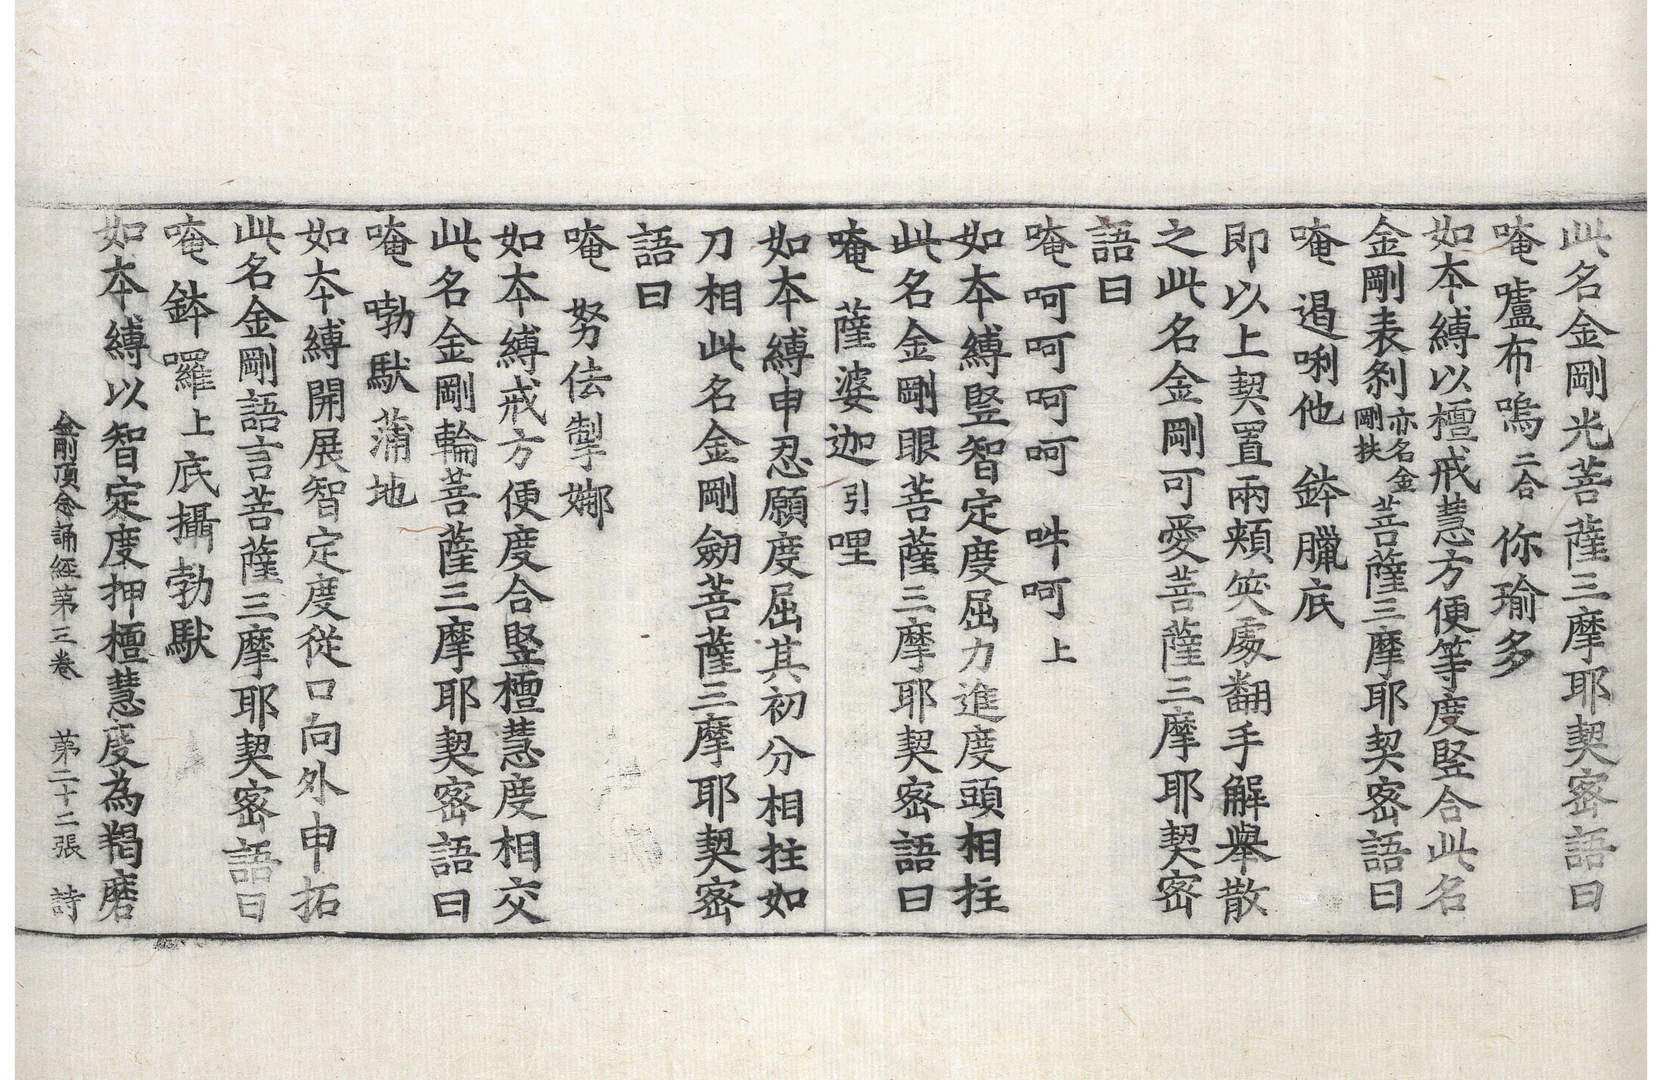 此名金剛光菩薩三摩耶契密語曰
唵嚧布嗚二合你瑜多
如本縛以檀戒慧方便等度竪合此名
金剛表刹亦名金剛扶菩薩三摩耶契密語曰
唵 遏唎他 鉢臘底
即以上契置兩頰笑處翻手解舉散
之此名金剛可愛菩薩三摩耶契密
語曰
唵呵呵呵呵 吽呵上
如本縛竪智定度屈力進度頭相拄
此名金剛眼菩薩三摩耶契密語曰
唵 薩婆迦引哩
如本縛申忍願度屈其初分相拄如
刀相此名金剛劒菩薩三摩耶契密
語曰
唵 努佉掣娜
如本縛戒方便度合竪檀慧度相交
此名金剛輪菩薩三摩耶契密語曰
唵 勃馱蒲地
如本縛開展智定度從口向外申拓
此名金剛語言菩薩三摩耶契密語曰
唵鉢囉上底攝勃馱
如本縛以智定度押檀慧度為羯磨
金剛頂念誦經第三卷 第二十二張 詩